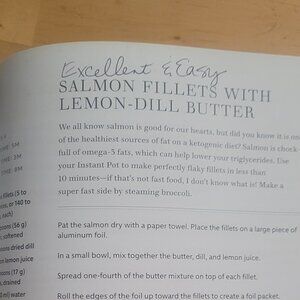 Excellent & Easy
SALMON FILLETS WITH
LEMON-DILL BUTTER
We all know salmon is good for our hearts, but did you know it is one
of the healthiest sources of fat on a ketogenic diet? Salmon is chock-
full of omega-3 fats, which can help lower your triglycerides. Use
your Instant Pot to make perfectly flaky fillets in less than
10 minutes—if that's not fast food, I don't know what is! Make a
super fast side by steaming broccoli.
TIME: 5M
TIME: 3M
TIME: 8M
fillets (5 to
or 140 to
each)
Pat the salmon dry with a paper towel. Place the fillets on a large piece of
aluminum foil.
(56 g)
softened
dried dill
lemon juice
In a small bowl, mix together the butter, dill, and lemon juice.
(17 g)
drained
Spread one-fourth of the butter mixture on top of each fillet.
ml) water
Roll the edges of the foil up toward the fillets to create a foil packet.